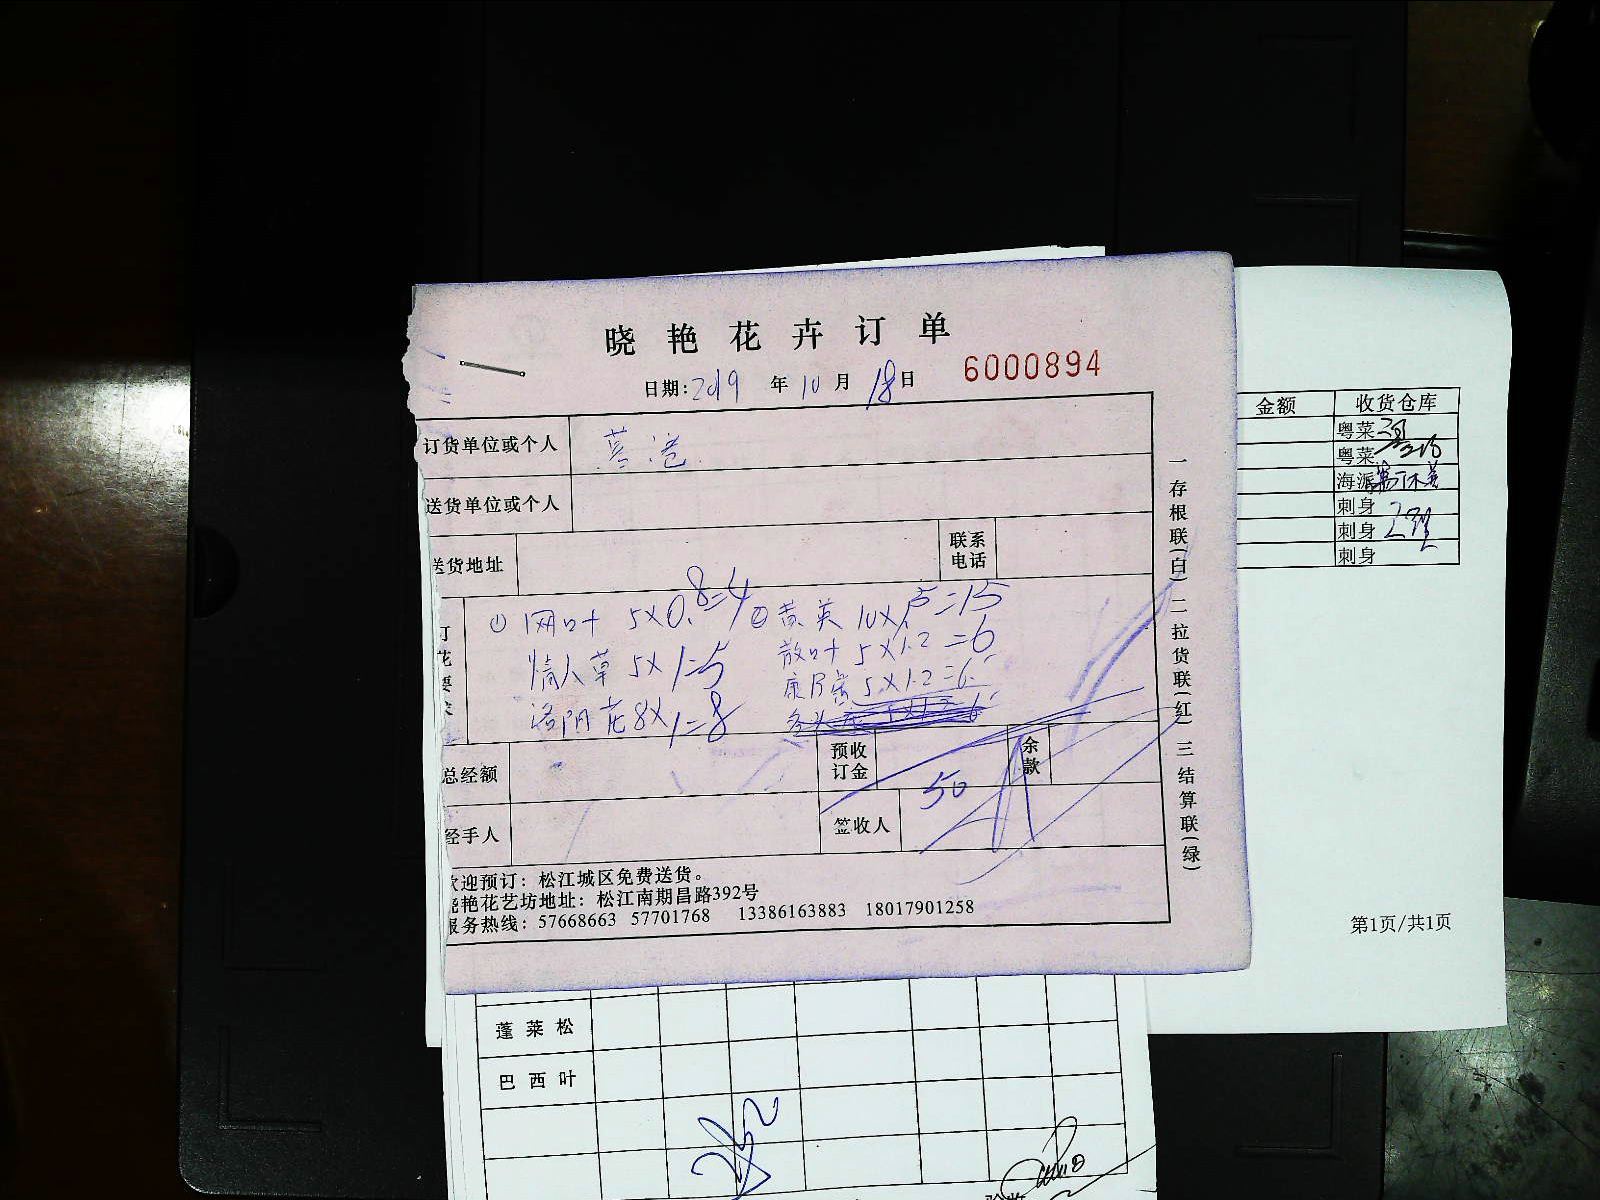 晓艳花卉订单
日期:2019年10月18日 6000894
订货单位或个人
送货单位或个人
送货地址 联系电话
订花要求
① 网叶 5×0.8=4 ② 黄英 10×1.5=15
情人草 5×1=5 散叶 5×1.2=6
洛阳花 8×1=8 康乃馨 5×1.2=6
总经额 预收订金 50 余款
经手人 签收人
欢迎预订：松江城区免费送货。
晓艳花艺坊地址：松江南期昌路392号
服务热线：57668663 57701768 13386163883 18017901258
一存根联(白) 二拉货联(红) 三结算联(绿)
金额 收货仓库
粤菜
粤菜
海派
刺身
刺身
刺身
第1页/共1页
蓬莱松
巴西叶